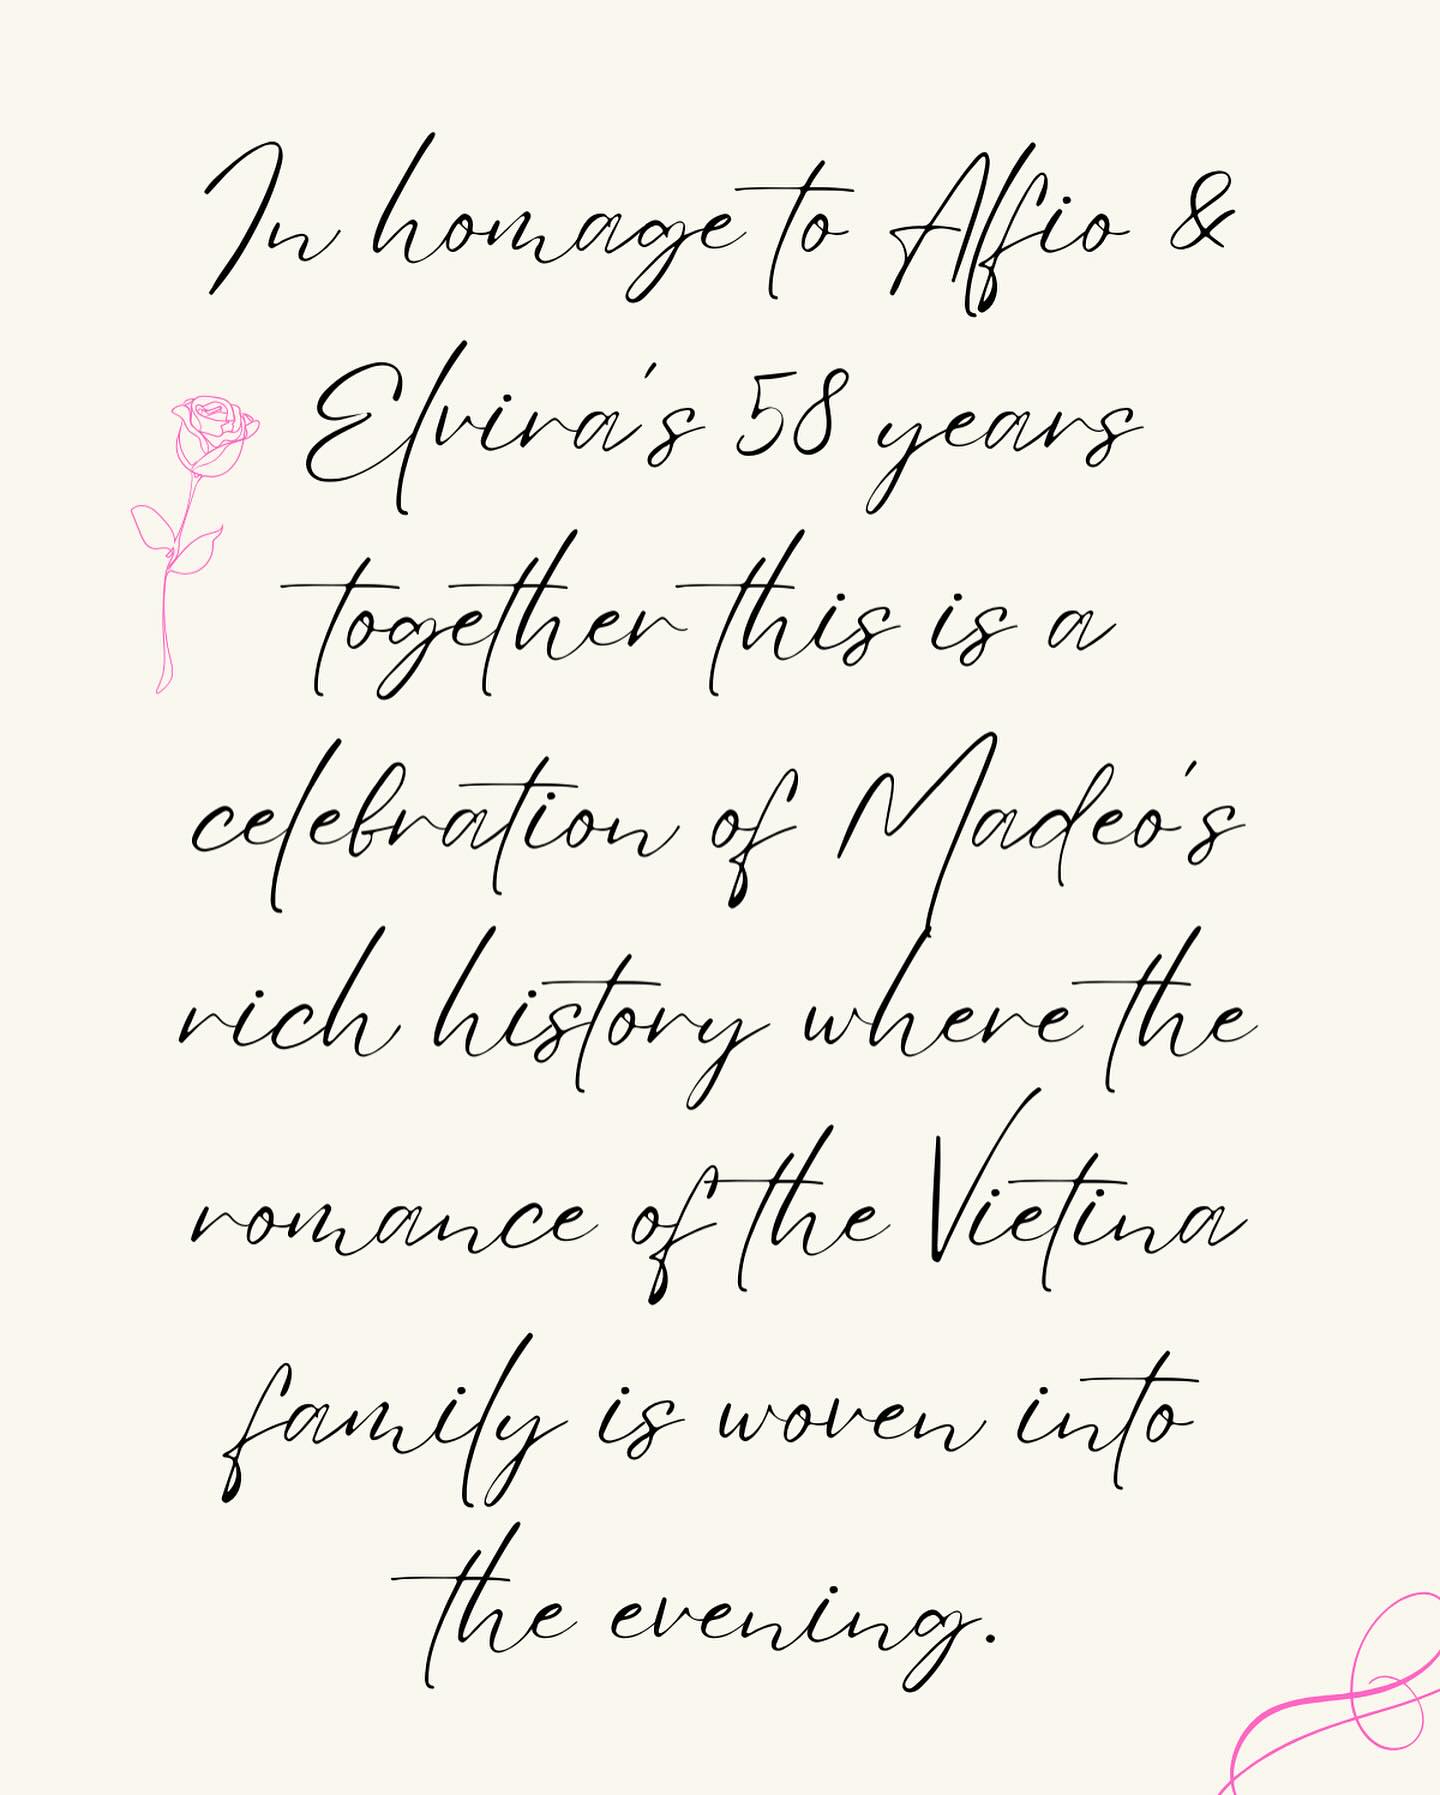 In homage to Alfio &
Elvira's 58 years
together this is a
celebration of Madeo's
rich history where the
romance of the Vietina
family is woven into
the evening.